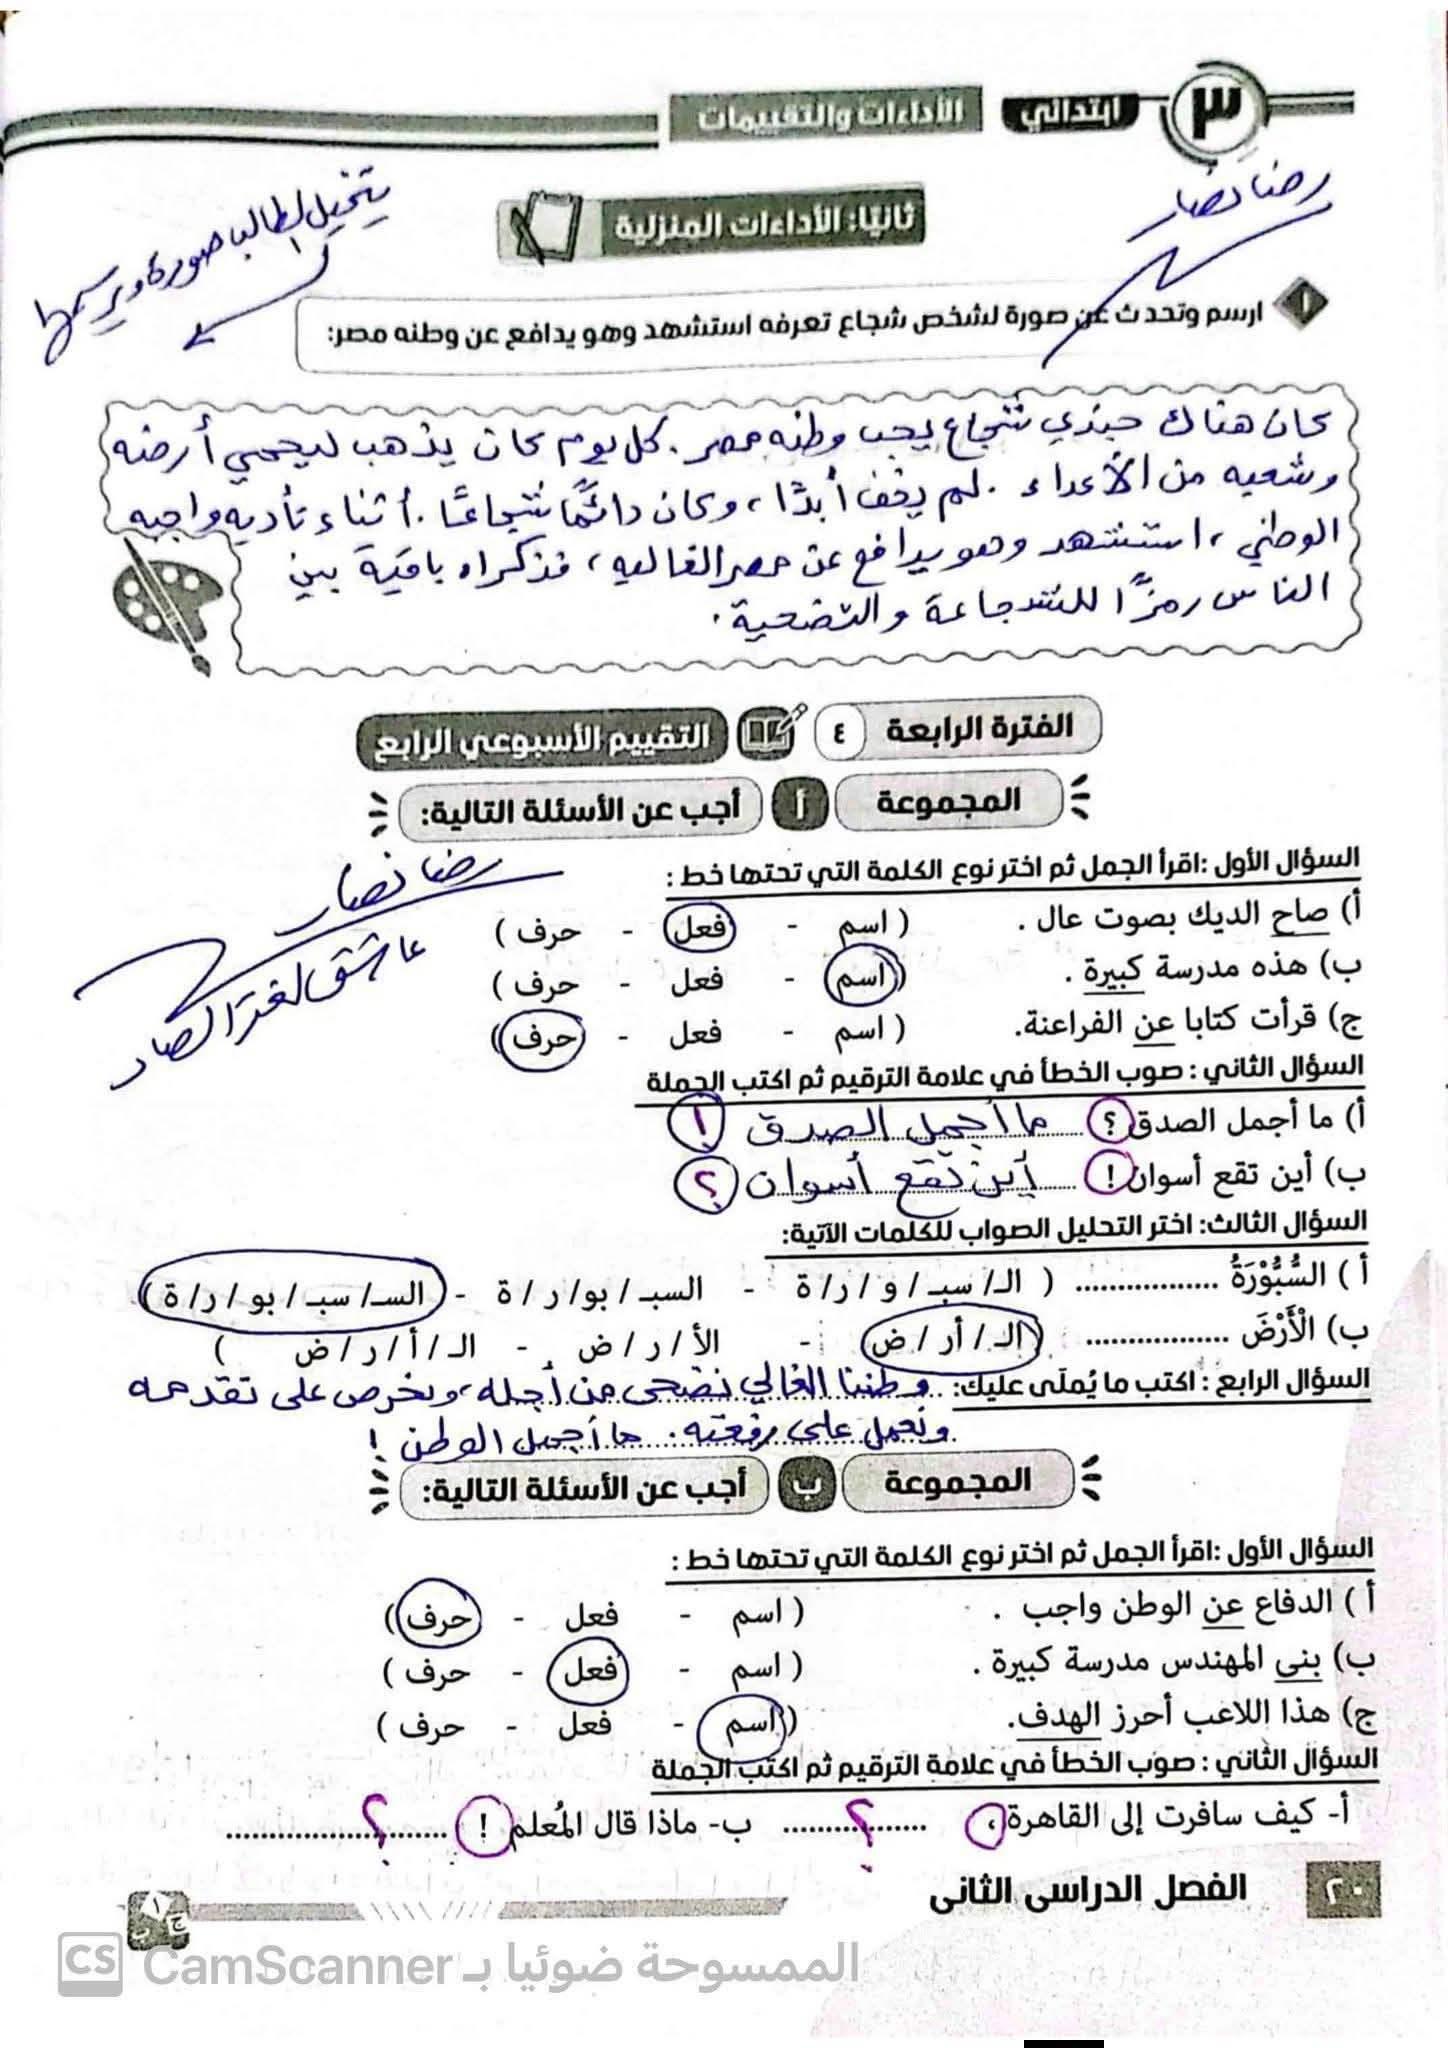 ٣ ابتدائي الأداءات والتقييمات
رضا نصار
يتخيل الطالب صورة ويرسمها
ثانيًا: الأداءات المنزلية
١ ارسم وتحدث عن صورة لشخص شجاع تعرفه استشهد وهو يدافع عن وطنه مصر:
كان هناك جندي شجاع يحب وطنه مصر. كل يوم كان يذهب ليحمي أرضه
وشعبه من الأعداء. لم يخف أبدًا، وكان دائمًا شجاعًا. أثناء تأديه واجبه
الوطني، استشهد وهو يدافع عن مصر الغاليه، فذكراه باقية بين
الناس رمزًا للشجاعة والتضحية.
الفترة الرابعة ٤ التقييم الأسبوعي الرابع
المجموعة أ أجب عن الأسئلة التالية:
رضا نصار
عاشق لغة الضاد
السؤال الأول :اقرأ الجمل ثم اختر نوع الكلمة التي تحتها خط :
أ) صاح الديك بصوت عال . ( اسم - فعل - حرف )
ب) هذه مدرسة كبيرة . ( اسم - فعل - حرف )
ج) قرأت كتابا عن الفراعنة. ( اسم - فعل - حرف )
السؤال الثاني : صوب الخطأ في علامة الترقيم ثم اكتب الجملة
أ) ما أجمل الصدق ؟ ما أجمل الصدق !
ب) أين تقع أسوان ! أين تقع أسوان ؟
السؤال الثالث: اختر التحليل الصواب للكلمات الآتية:
أ ) السُّبُّوْرَةُ ................. ( الـ/ سبـ / و / ر/ ة - السبـ / بو/ ر / ة - السـ/ سبـ / بو / ر/ ة )
ب) الْأَرْضَ ................. ( الـ / أر / ض - الأ / ر / ض - الـ / أ / ر / ض )
السؤال الرابع : اكتب ما يُملَى عليك: وطننا الغالي نضحى من أجله، ونحرص على تقدمه
ونعمل على رفعته. ما أجمل الوطن !
المجموعة ب أجب عن الأسئلة التالية:
السؤال الأول :اقرأ الجمل ثم اختر نوع الكلمة التي تحتها خط :
أ ) الدفاع عن الوطن واجب . ( اسم - فعل - حرف )
ب) بنى المهندس مدرسة كبيرة . ( اسم - فعل - حرف )
ج) هذا اللاعب أحرز الهدف. ( اسم - فعل - حرف )
السؤال الثاني : صوب الخطأ في علامة الترقيم ثم اكتب الجملة
أ- كيف سافرت إلى القاهرة ، ........؟........ ب- ماذا قال المُعلم ! ........؟........
٢٠ الفصل الدراسى الثانى
أ ب ج
CS الممسوحة ضوئيا بـ CamScanner